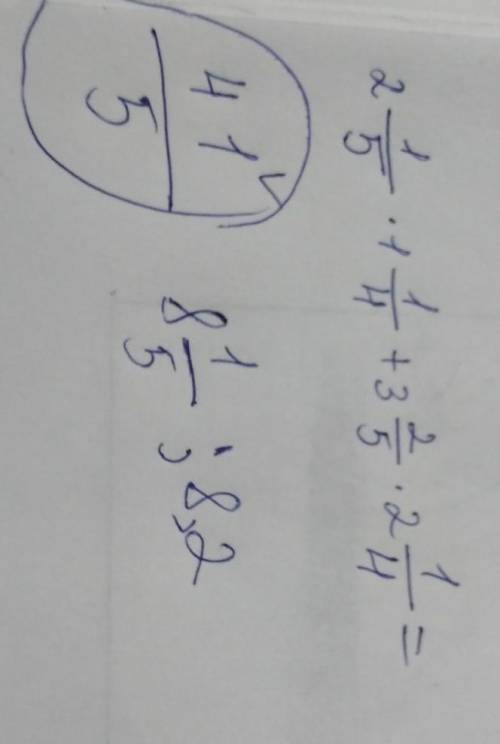 2 1/5 · 1 1/4 + 3 2/5 · 2 1/4 =
41/5
8 1/5 ; 8,2